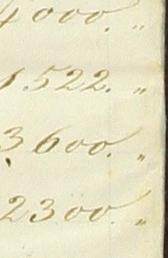 4000. "
1522. "
3600. "
2300. "